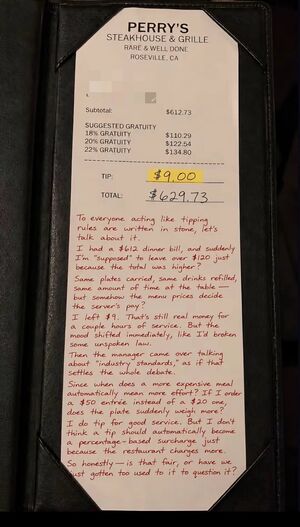 PERRY'S
STEAKHOUSE & GRILLE
RARE & WELL DONE
ROSEVILLE, CA
Subtotal: $612.73
SUGGESTED GRATUITY
18% GRATUITY $110.29
20% GRATUITY $122.54
22% GRATUITY $134.80
TIP: $9.00
TOTAL: $629.73
To everyone acting like tipping
rules are written in stone, let's
talk about it.
I had a $612 dinner bill, and suddenly
I'm "supposed" to leave over $120 just
because the total was higher?
Same plates carried, same drinks refilled,
same amount of time at the table —
but somehow the menu prices decide
the server's pay?
I left $9. That's still real money for
a couple hours of service. But the
mood shifted immediately, like I'd broken
some unspoken law.
Then the manager came over talking
about "industry standards," as if that
settles the whole debate.
Since when does a more expensive meal
automatically mean more effort? If I order
a $50 entrée instead of a $20 one,
does the plate suddenly weigh more?
I do tip for good service. But I don't
think a tip should automatically become
a percentage-based surcharge just
because the restaurant charges more.
So honestly — is that fair, or have we
just gotten too used to it to question it?